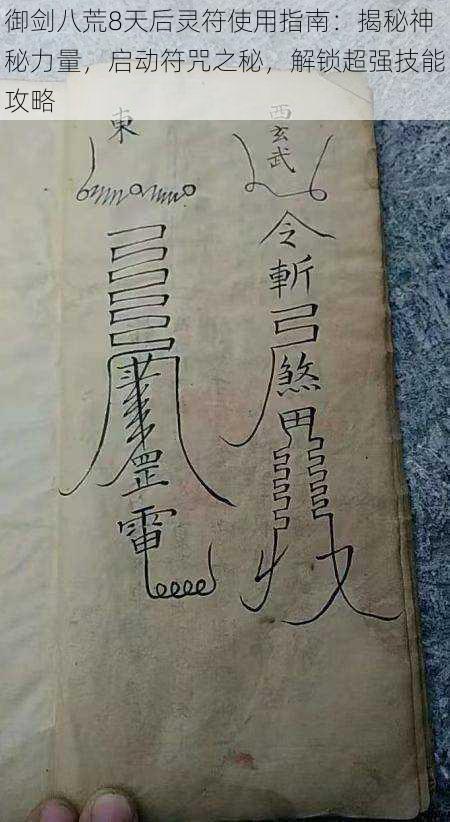 御剑八荒8天后灵符使用指南：揭秘神
秘力量，启动符咒之秘，解锁超强技能
攻略
西玄武
令
斬
煞
東
罡
電